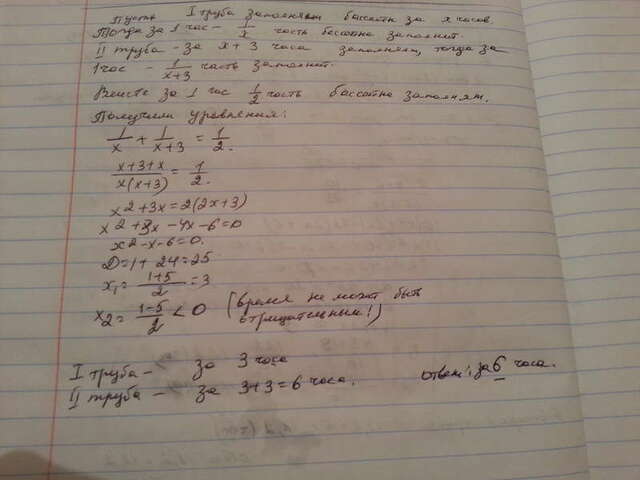 Пусть I труба заполняет бассейн за x часов.
Тогда за 1 час - 1/x часть бассейна заполнит.
II труба - за x+3 часа заполняет, тогда за
1 час - 1/(x+3) часть заполнит.
Вместе за 1 час 1/2 часть бассейна заполнят.
Получим уравнения:
1/x + 1/(x+3) = 1/2.
(x+3+x)/(x(x+3)) = 1/2.
x2+3x=2(2x+3)
x2+3x-4x-6=0
x2-x-6=0.
D=1+24=25
x1=(1+5)/2=3
x2=(1-5)/2<0 (время не может быть
отрицательным!)
I труба - за 3 часа
II труба - за 3+3=6 часа. ответ: за 6 часа.